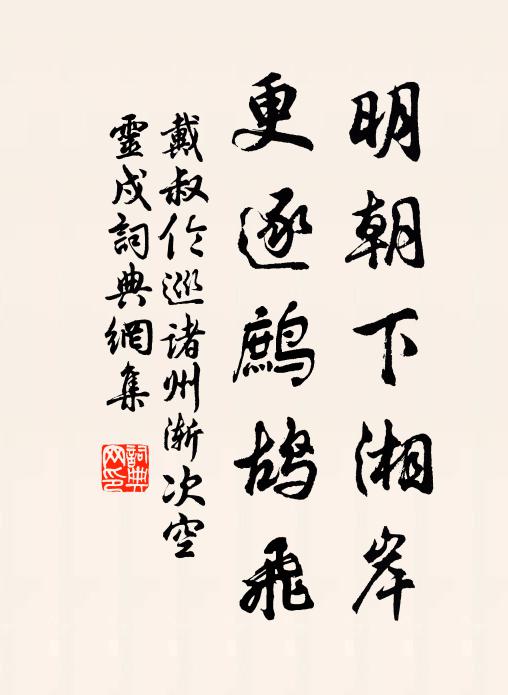 明朝下湘岸
更逐鷓鴣飛
戴叔伦巡諸州漸次空
靈戍詞典網集
詞典网印